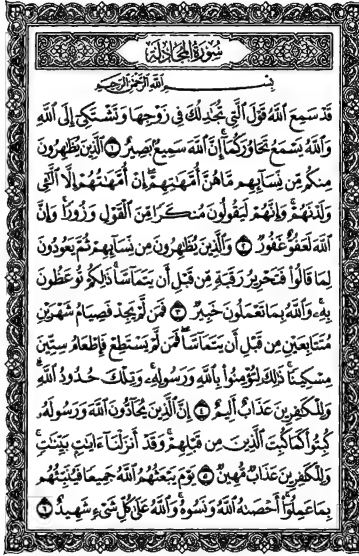 سُورَةُ المُجَادلَة
بِسْمِ ٱللَّهِ ٱلرَّحْمَٰنِ ٱلرَّحِيمِ
قَدْ سَمِعَ ٱللَّهُ قَوْلَ ٱلَّتِى تُجَٰدِلُكَ فِى زَوْجِهَا وَتَشْتَكِىٓ إِلَى ٱللَّهِ
وَٱللَّهُ يَسْمَعُ تَحَاوُرَكُمَآ إِنَّ ٱللَّهَ سَمِيعٌۢ بَصِيرٌ ١ ٱلَّذِينَ يُظَٰهِرُونَ
مِنكُم مِّن نِّسَآئِهِم مَّا هُنَّ أُمَّهَٰتِهِمْ إِنْ أُمَّهَٰتُهُمْ إِلَّا ٱلَّٰٓـِٔى
وَلَدْنَهُمْ وَإِنَّهُمْ لَيَقُولُونَ مُنكَرًا مِّنَ ٱلْقَوْلِ وَزُورًا وَإِنَّ
ٱللَّهَ لَعَفُوٌّ غَفُورٌ ٢ وَٱلَّذِينَ يُظَٰهِرُونَ مِن نِّسَآئِهِمْ ثُمَّ يَعُودُونَ
لِمَا قَالُوا۟ فَتَحْرِيرُ رَقَبَةٍ مِّن قَبْلِ أَن يَتَمَآسَّا ذَٰلِكُمْ تُوعَظُونَ
بِهِۦ وَٱللَّهُ بِمَا تَعْمَلُونَ خَبِيرٌ ٣ فَمَن لَّمْ يَجِدْ فَصِيَامُ شَهْرَيْنِ
مُتَتَابِعَيْنِ مِن قَبْلِ أَن يَتَمَآسَّا فَمَن لَّمْ يَسْتَطِعْ فَإِطْعَامُ سِتِّينَ
مِسْكِينًا ذَٰلِكَ لِتُؤْمِنُوا۟ بِٱللَّهِ وَرَسُولِهِۦ وَتِلْكَ حُدُودُ ٱللَّهِ
وَلِلْكَٰفِرِينَ عَذَابٌ أَلِيمٌ ٤ إِنَّ ٱلَّذِينَ يُحَآدُّونَ ٱللَّهَ وَرَسُولَهُۥ
كُبِتُوا۟ كَمَا كُبِتَ ٱلَّذِينَ مِن قَبْلِهِمْ وَقَدْ أَنزَلْنَآ ءَايَٰتٍۭ بَيِّنَٰتٍ
وَلِلْكَٰفِرِينَ عَذَابٌ مُّهِينٌ ٥ يَوْمَ يَبْعَثُهُمُ ٱللَّهُ جَمِيعًا فَيُنَبِّئُهُم
بِمَا عَمِلُوٓا۟ أَحْصَىٰهُ ٱللَّهُ وَنَسُوهُ وَٱللَّهُ عَلَىٰ كُلِّ شَىْءٍ شَهِيدٌ ٦